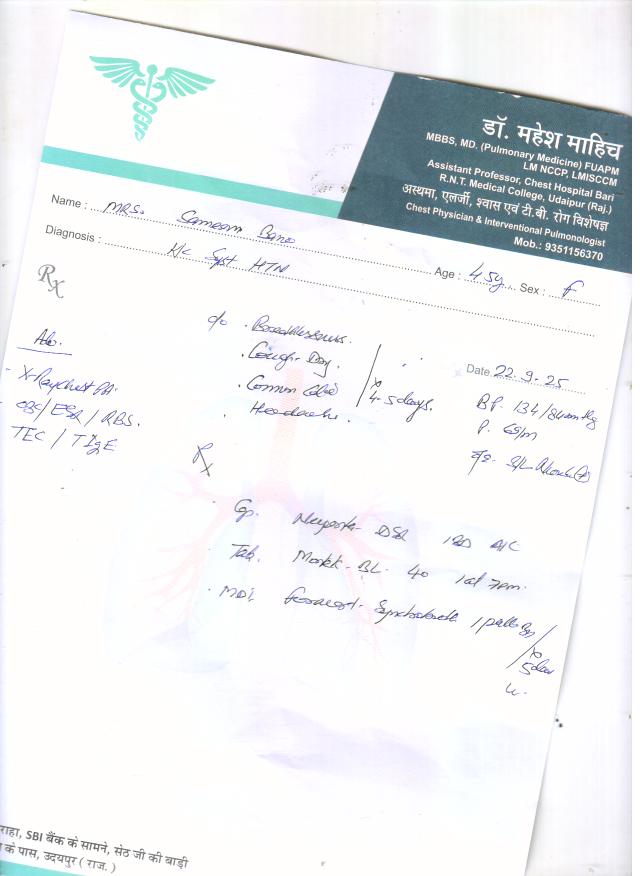 डॉ. महेश माहिच
MBBS, MD. (Pulmonary Medicine) FUAPM
LM NCCP, LMISCCM
Assistant Professor, Chest Hospital Bari
R.N.T. Medical College, Udaipur (Raj.)
अस्थमा, एलर्जी, श्वास एवं टी.बी. रोग विशेषज्ञ
Chest Physician & Interventional Pulmonologist
Mob.: 9351156370
Name : MRS. Bano Age : 45y Sex : F
Diagnosis : K/c Syst HTN
Rx
c/o . Breathlessness.
. Cough - Dry.
. Common Cold
. Headache.
x 4-5 days.
Date 22.9.25
BP. 134/84 mmHg
P. 69/m
Adv.
X-Ray chest PA.
CBC / ESR / RBS.
TEC / TIgE
Rx
Cp. DSR
Tab. BL 40 1 at 7pm.
. MDI. 1 puff
x
5 days
राहा, SBI बैंक के सामने, सेठ जी की बाड़ी
के पास, उदयपुर ( राज. )